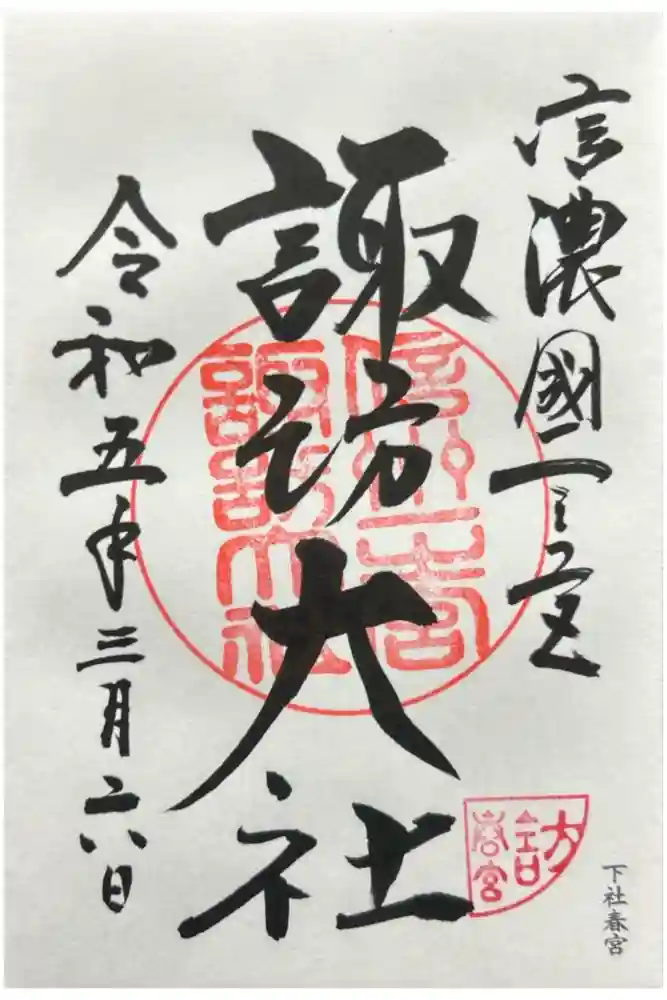 信濃國一之宮
諏訪大社
令和五年三月六日
信州一之宮
諏訪大社
下社春宮